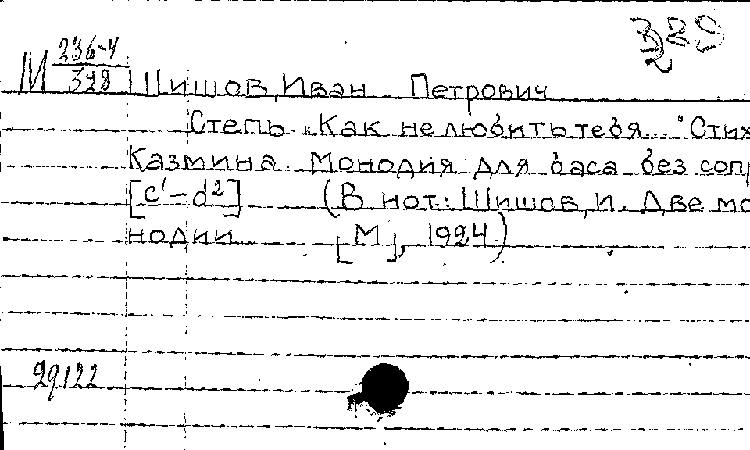 М 236-4/328 Шишов, Иван Петрович
Степь. "Как не любить тебя..." Стих
Казмина. Монодия для баса без сопр
[c'-d²] (В нот.: Шишов, И. Две мо
нодии [М], 1924.)
29122